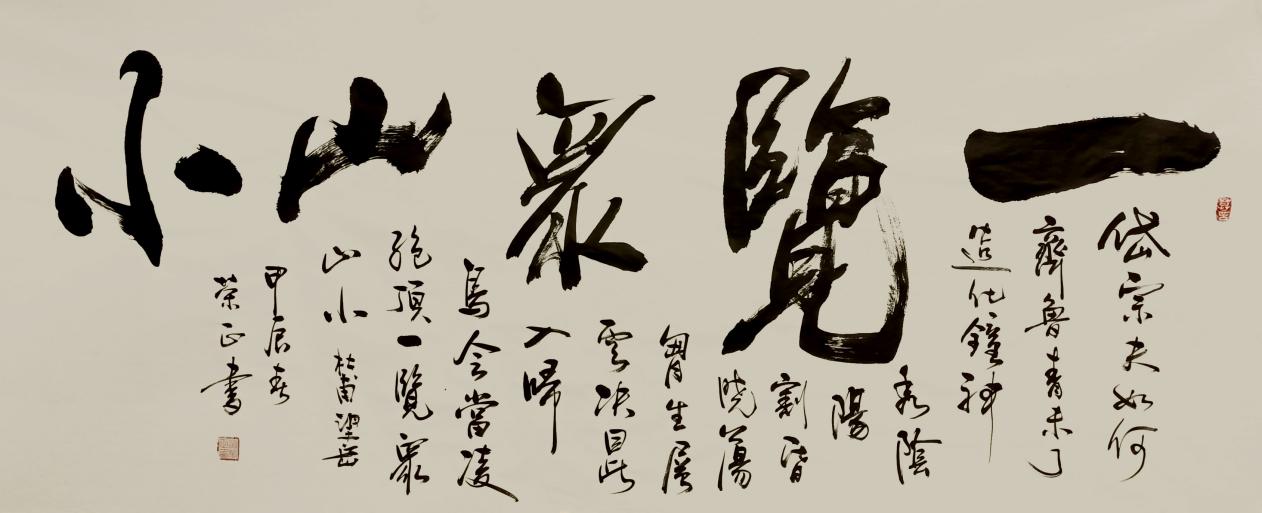 一覽眾山小
岱宗夫如何
齊魯青未了
造化鐘神
秀陰
陽
割昏
曉蕩
胷生層
雲决眦
入歸
鳥会當凌
絕頂一覽眾
山小 杜甫望岳
甲辰春
荣正書